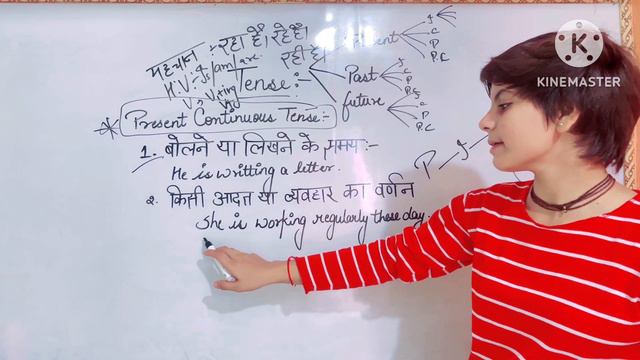 पहचान - रहा है, रहे हैं,
रही है
H.V:- Is/am/are
V₁ Ving
Tense:-
Present
Past
future
Present Continuous Tense:-
1. बोलने या लिखने के समय:-
He is writting a letter.
2. किसी आदत या व्यवहार का वर्णन
She is working regularly these day.
KINEMASTER